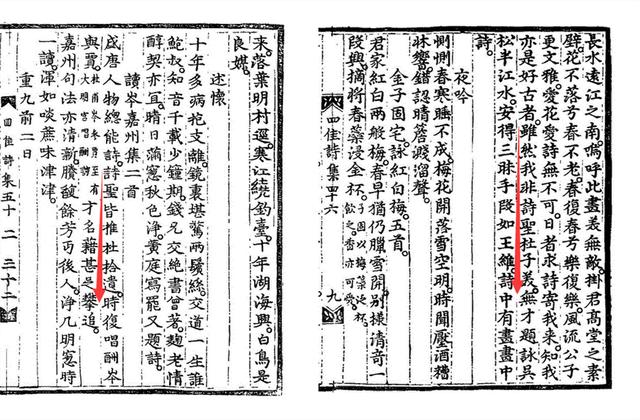 長水遠江之南嗚呼此畫義無敵掛君高堂之素
壁花不落兮春不老春復春兮樂復樂風流公子
更文雅愛花愛詩無不可日者求詩寄我來知我
亦是好古者雖然我非詩聖杜子美無才題詠吳
松半江水安得三昧手段如王維詩中有畫畫中
詩
夜吟
惻惻春寒睡不成梅花開落雪空明時聞壓酒糟
牀響錯認晴簷濺溜聲
金子固宅詠紅白梅五首
君家紅白兩般梅春早猶仍臘雪開別樣清音一
段興摘將春蘂浸金杯子固以梅蘂泛杯飲之香亦可愛
四佳詩集四十六 九
來落葉明村逕寒江繞釣臺十年湖海興白鳥是
良媒
述懷
十年多病抱支離鏡裏堪驚兩鬢絲交道一生誰
鮑叔知音千載少鍾期錢兄交絶書曾著麴老情
醇契亦宜晴日滿窓秋色淨黃庭寫罷又題詩
讀岑嘉州集二首
盛唐人物總能詩詩聖皆推杜拾遺時復唱酬岑
與賈杜甫岑參賈至有大明宮唱酬才名藉甚足攀追
嘉州句法亦清新賸馥餘芳丐後人淨几明窓時
一讀渾如啖蔗味津津
重九前二日
四佳詩集五十二 三十二